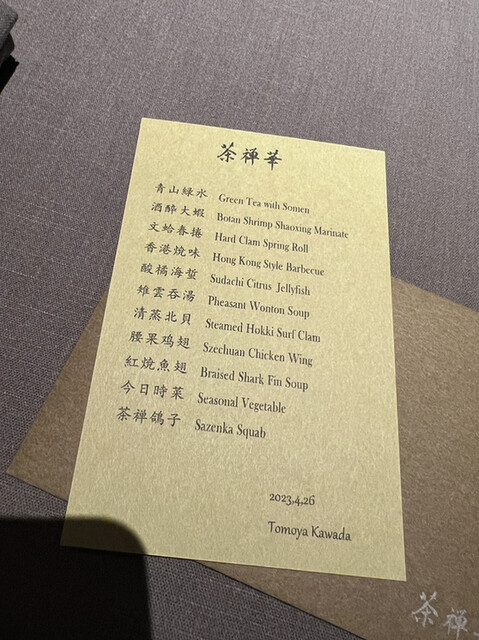 茶禅華
青山緑水 Green Tea with Somen
酒醉大蝦 Botan Shrimp Shaoxing Marinate
文蛤春捲 Hard Clam Spring Roll
香港焼味 Hong Kong Style Barbecue
酸橘海蜇 Sudachi Citrus Jellyfish
雉雲呑湯 Pheasant Wonton Soup
清蒸北貝 Steamed Hokki Surf Clam
腰果鸡翅 Szechuan Chicken Wing
紅焼魚翅 Braised Shark Fin Soup
今日時菜 Seasonal Vegetable
茶禅鴿子 Sazenka Squab
2023,4,26
Tomoya Kawada
茶禅